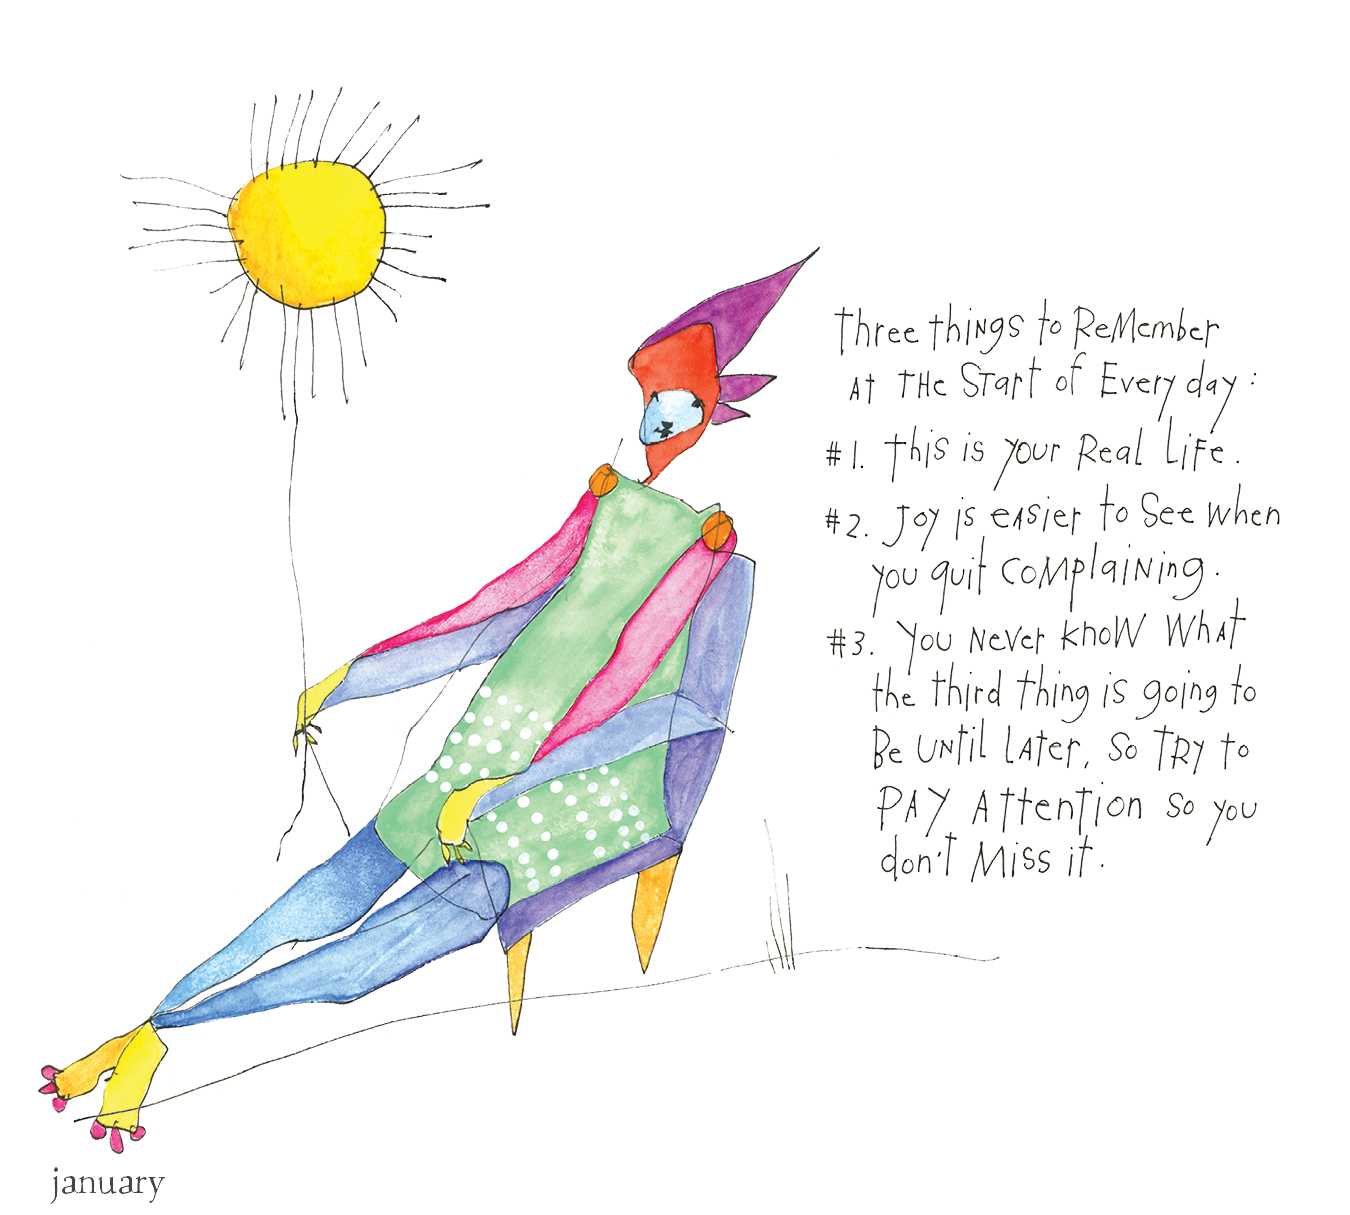 three things to ReMember
At THe Start of Every day:
#1. this is your Real Life.
#2. Joy is easier to See When
you quit coMplaiNing.
#3. You Never kNoW WhAt
the third thing is going to
Be UNtil LAter, So TRY to
PAY Attention So you
don't Miss it.
january